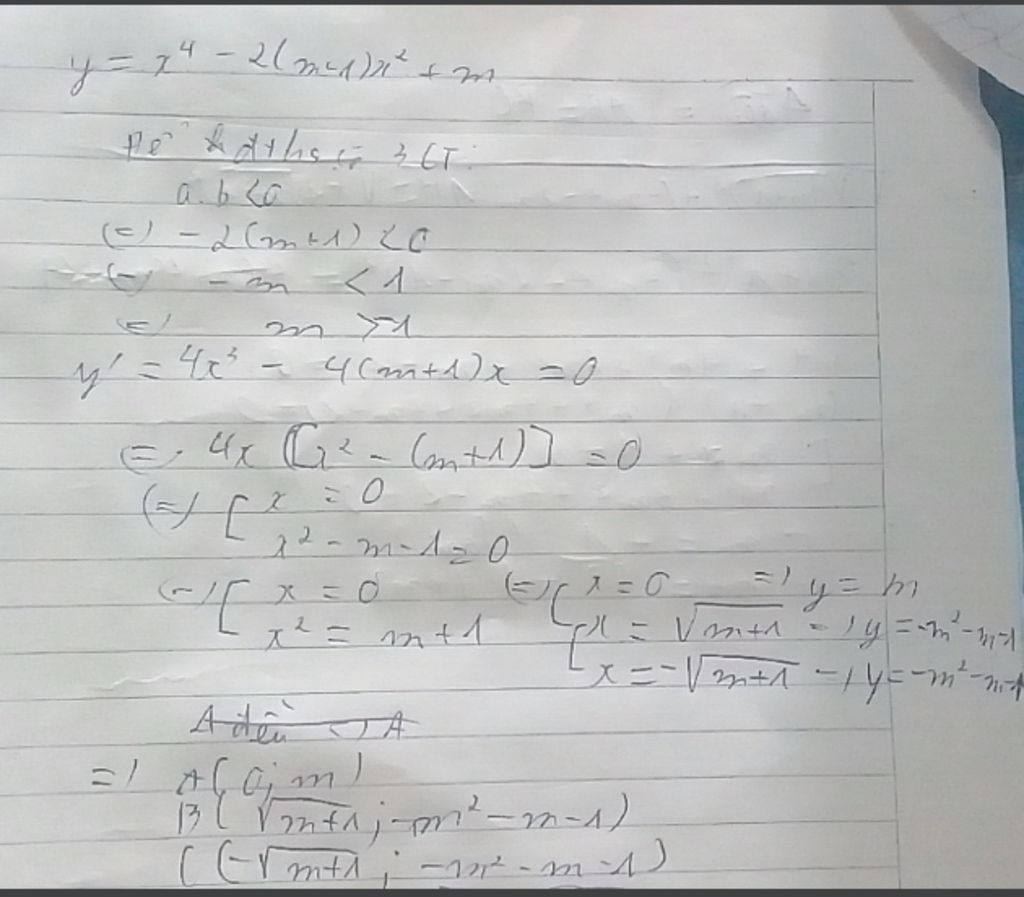 y = x⁴ - 2(m+1)x² + m
Để đths có 3 CT.
a.b < 0
(=) -2(m+1) < 0
(=) -m < 1
(=) m > -1
y' = 4x³ - 4(m+1)x = 0
(=) 4x [x² - (m+1)] = 0
(=) [ x = 0
x² - m - 1 = 0
(=) [ x = 0 (=) [ x = 0 => y = m
x² = m + 1 [ x = √(m+1) => y = -m² - m - 1
x = -√(m+1) => y = -m² - m - 1
Δ đều A
=> A(0; m)
B(√(m+1); -m² - m - 1)
C(-√(m+1); -m² - m - 1)